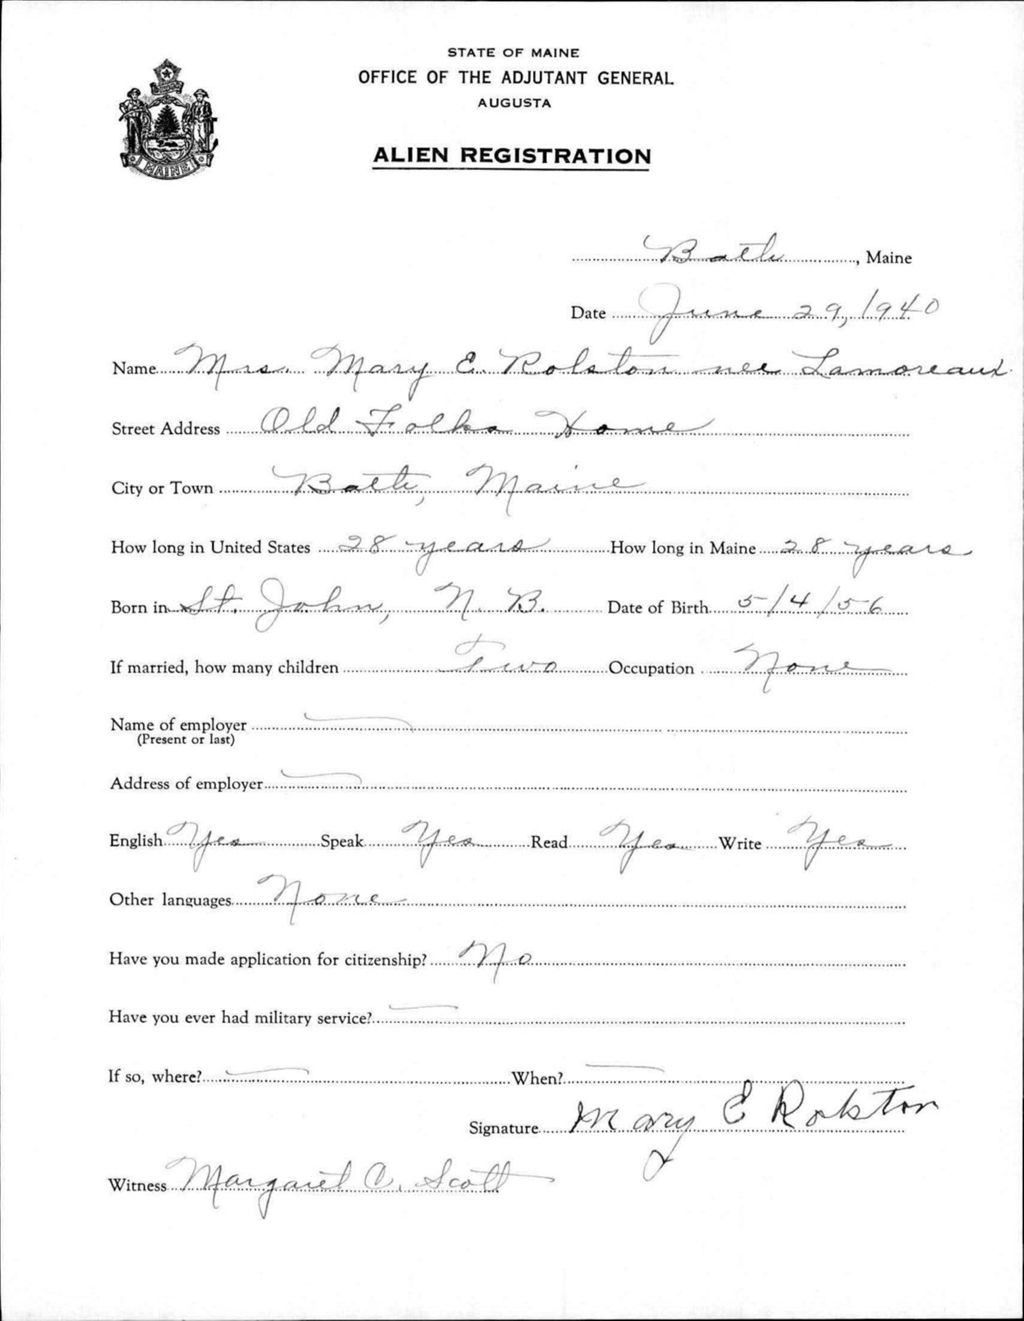 STATE OF MAINE
OFFICE OF THE ADJUTANT GENERAL
AUGUSTA
ALIEN REGISTRATION
MAINE
Bath, Maine
Date June 29, 1940
Name Mrs. Mary E. Rolston nee Lamoreaux
Street Address Old Folks Home
City or Town Bath, Maine
How long in United States 28 years How long in Maine 28 years
Born in St. John, N. B. Date of Birth 5/4/56
If married, how many children Two Occupation None
Name of employer
(Present or last)
Address of employer
English Yes Speak Yes Read Yes Write Yes
Other languages None
Have you made application for citizenship? No
Have you ever had military service?
If so, where? When?
Signature Mary E Rolston
Witness Margaret C. Scott